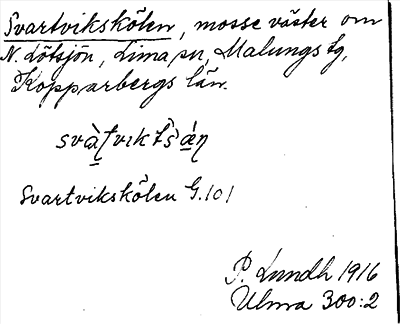 Svartvikskölen, mosse väster om
N. Lötsjön, Lima sn, Malungs tg,
Kopparbergs län.
Svartvikskölen G.101
P. Lundh 1916
Ulma 300:2